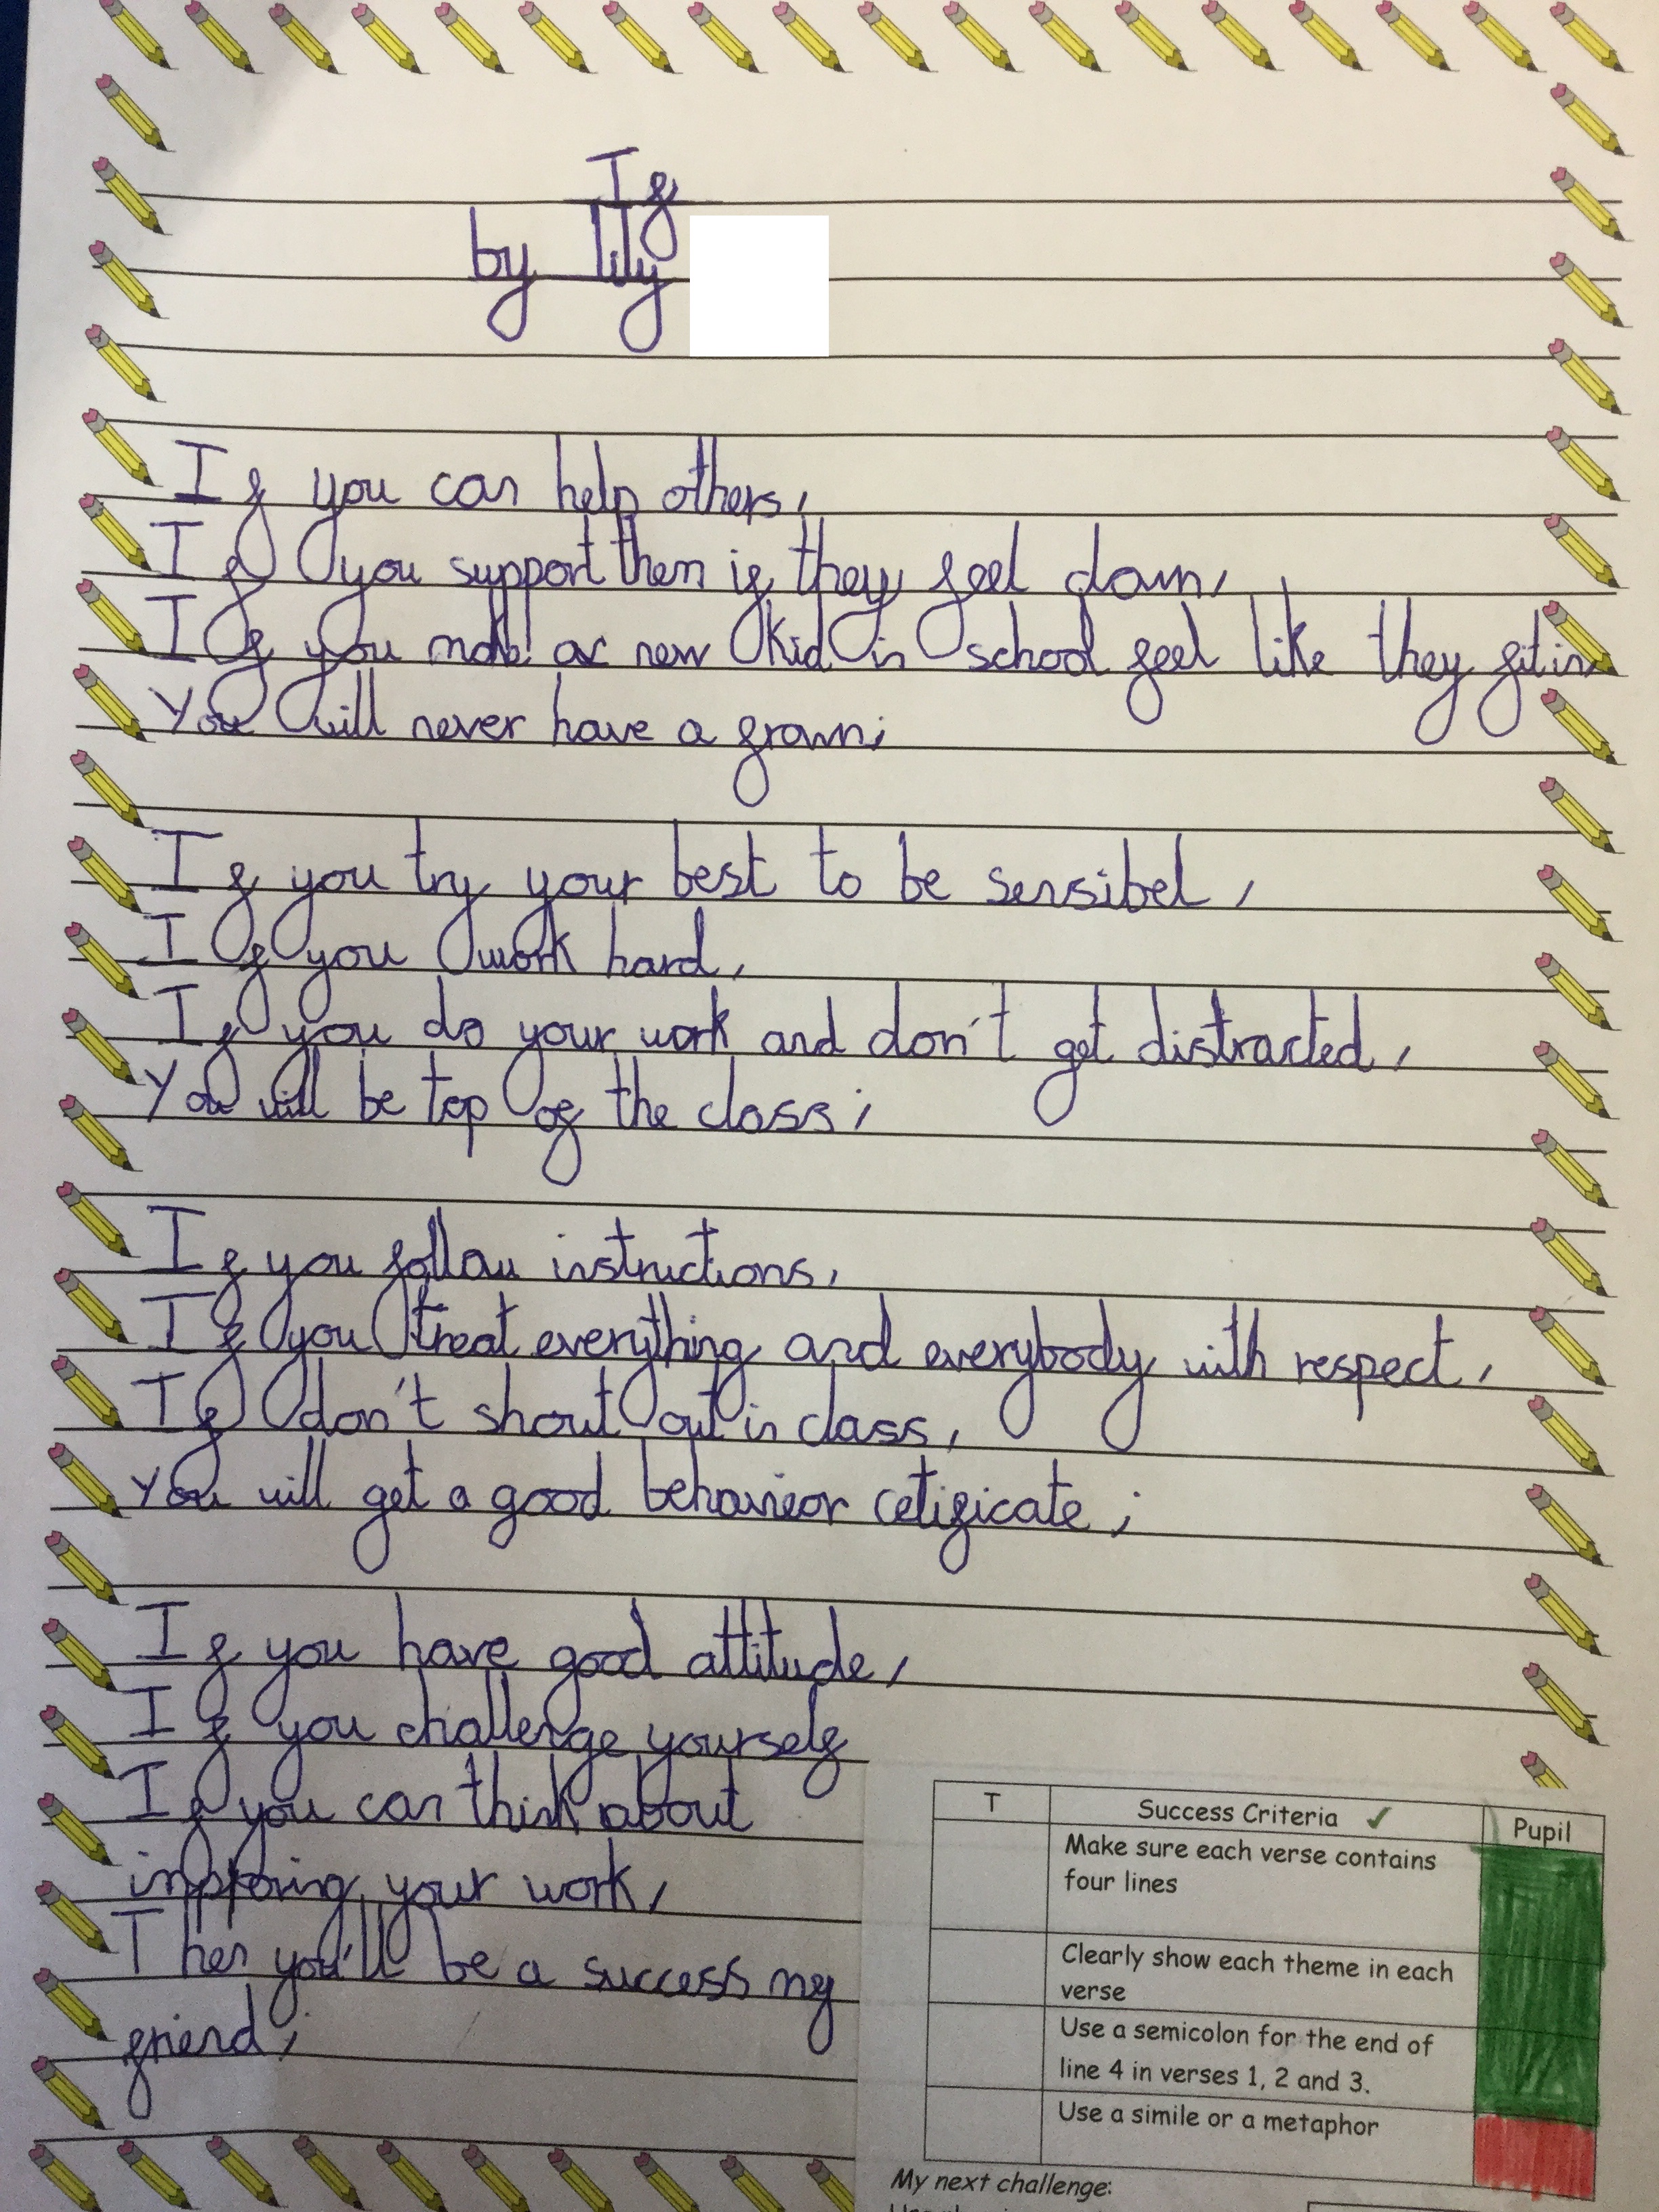 If
by lily
If you can help others,
If you support them if they feel down,
If you make a new kid in school feel like they fit in
You will never have a frown;
If you try your best to be sensibel,
If you work hard,
If you do your work and don't get distracted,
You will be top of the class;
If you follow instructions,
If you treat everything and everybody with respect,
If don't shout out in class,
You will get a good behavieor cetificate;
If you have good attitude,
If you challenge yourself
If you can think about
improving your work,
Then you'll be a success my
friend;
T Success Criteria ✓ Pupil
Make sure each verse contains
four lines
Clearly show each theme in each
verse
Use a semicolon for the end of
line 4 in verses 1, 2 and 3.
Use a simile or a metaphor
My next challenge: